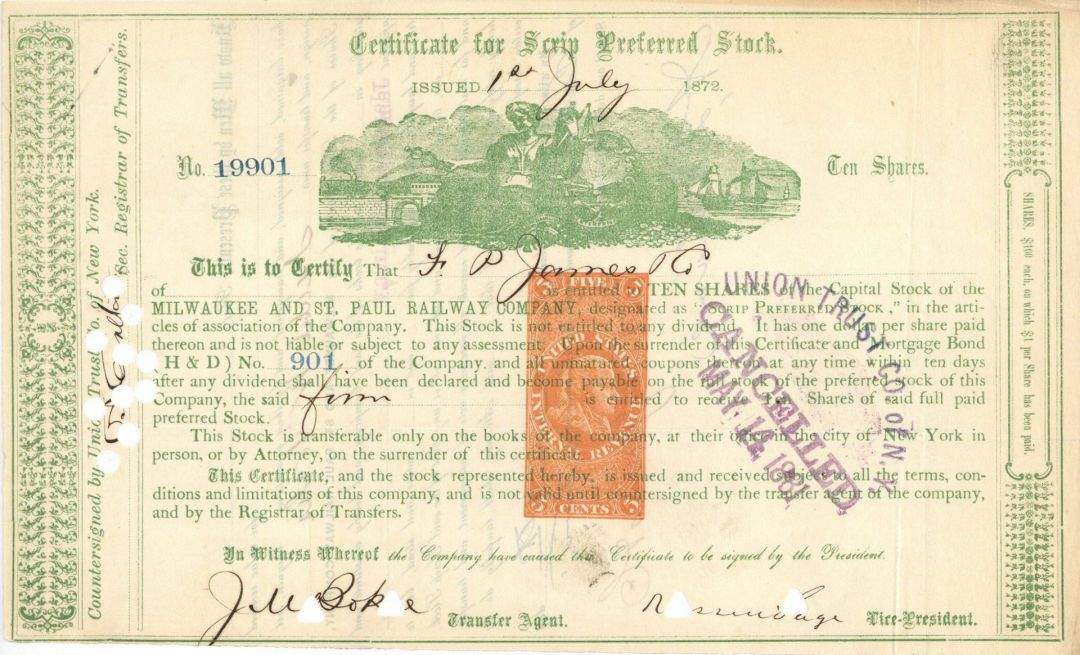 Certificate for Scrip Preferred Stock.
ISSUED 1st July 1872.
No. 19901
Ten Shares.
This is to Certify That F. P. James & Co
of is entitled to TEN SHARES of the Capital Stock of the
MILWAUKEE AND ST. PAUL RAILWAY COMPANY, designated as "SCRIP PREFERRED STOCK," in the arti-
cles of association of the Company. This Stock is not entitled to any dividend. It has one dollar per share paid
thereon and is not liable or subject to any assessment. Upon the surrender of this Certificate and Mortgage Bond
(H & D) No. 901 of the Company and all unmatured coupons thereon at any time within ten days
after any dividend shall have been declared and become payable on the full stock of the preferred stock of this
Company, the said firm is entitled to receive Ten Shares of said full paid
preferred Stock.
This Stock is transferable only on the books of the company, at their office in the city of New York in
person, or by Attorney, on the surrender of this certificate.
This Certificate, and the stock represented hereby, is issued and received subject to all the terms, con-
ditions and limitations of this company, and is not valid until countersigned by the transfer agent of the company,
and by the Registrar of Transfers.
In Witness Whereof the Company have caused this Certificate to be signed by the President.
Transfer Agent.
Vice-President.
Countersigned by Union Trust Co. of New York.
Sec. Registrar of Transfers.
SHARES, $100 each, on which $1 per Share has been paid.
FIVE
INTER. REVENUE
5 CENTS 5
UNION TRUST CO. OF N.Y.
CANCELLED